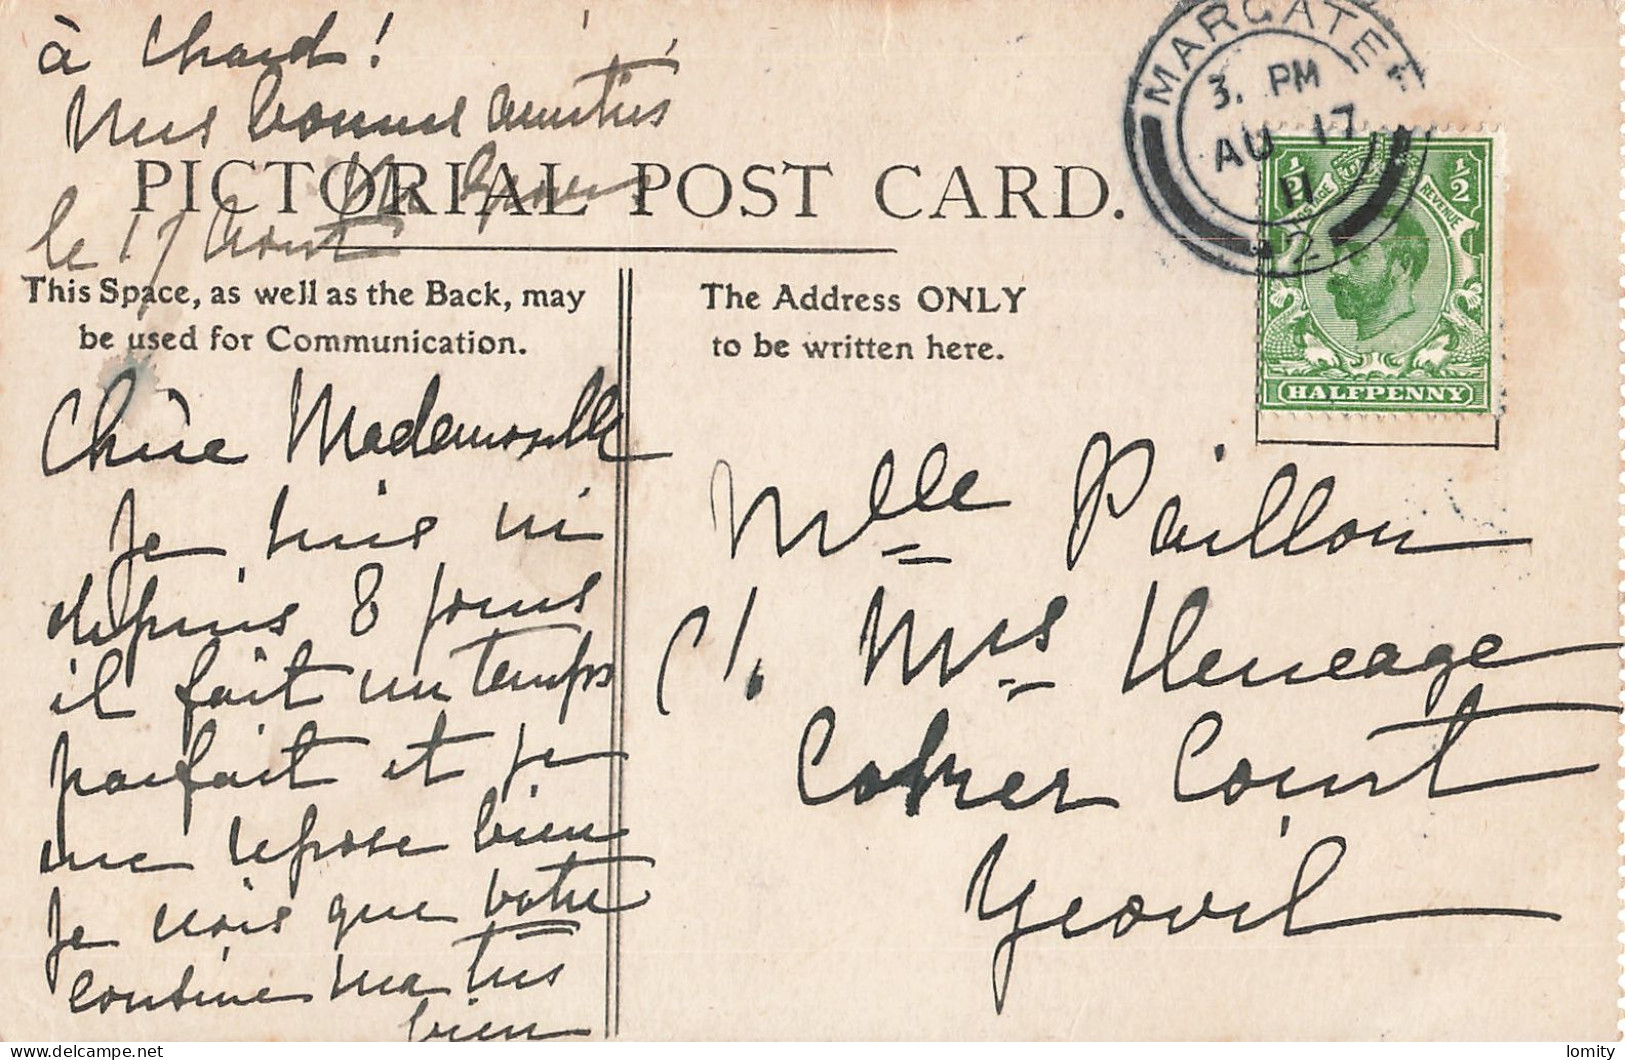 à Chard!
Mes bonnes amitiés
PICTORIAL POST CARD.
le 17 Août
This Space, as well as the Back, may
be used for Communication.
Chère Mademoiselle
Je suis ici
depuis 8 jours
il fait un temps
parfait et je
me repose bien
Je vois que votre
continue
bien
The Address ONLY
to be written here.
MARGATE
3. PM
AU 17
11
2
1/2 1/2
POSTAGE REVENUE
HALFPENNY
Mlle Paillon
c/. Mrs Heneage
Coker Court
Yeovil
Delcampe.net
lomity